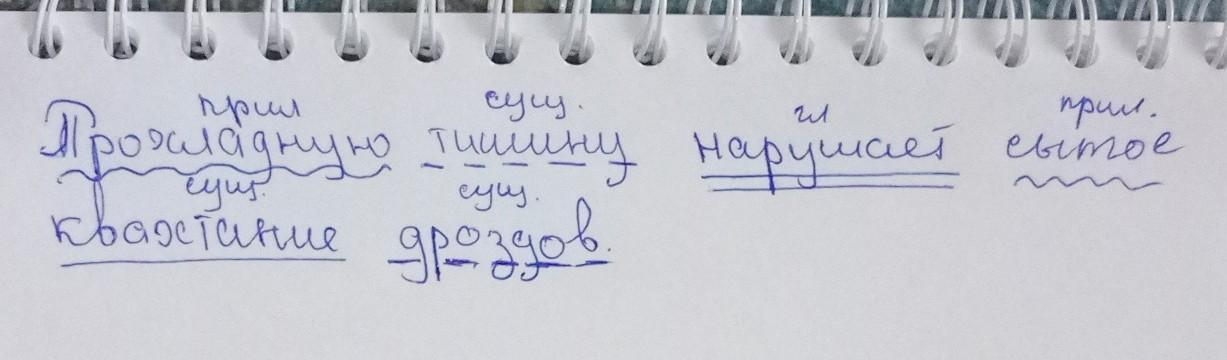 прил сущ. гл прил.
Прохладную тишину нарушает сытое
сущ. сущ.
квохтание дроздов.